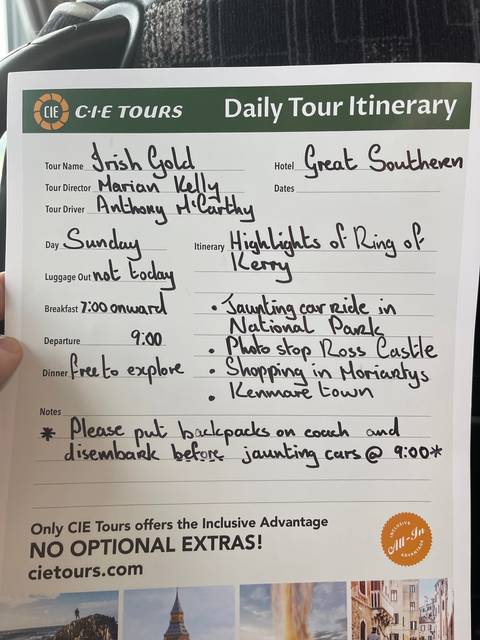 CIE C·I·E TOURS Daily Tour Itinerary
Tour Name Irish Gold
Hotel Great Southern
Tour Director Marian Kelly
Dates
Tour Driver Anthony McCarthy
Day Sunday
Itinerary Highlights of Ring of
Kerry
Luggage Out not today
Breakfast 7:00 onward
• Jaunting car ride in
National Park
Departure 9:00
• Photo stop Ross Castle
Dinner free to explore
• Shopping in Moriartys
• Kenmare town
Notes
* Please put backpacks on coach and
disembark before jaunting cars @ 9:00*
Only CIE Tours offers the Inclusive Advantage
NO OPTIONAL EXTRAS!
cietours.com
INCLUSIVE
All-In
ADVANTAGE